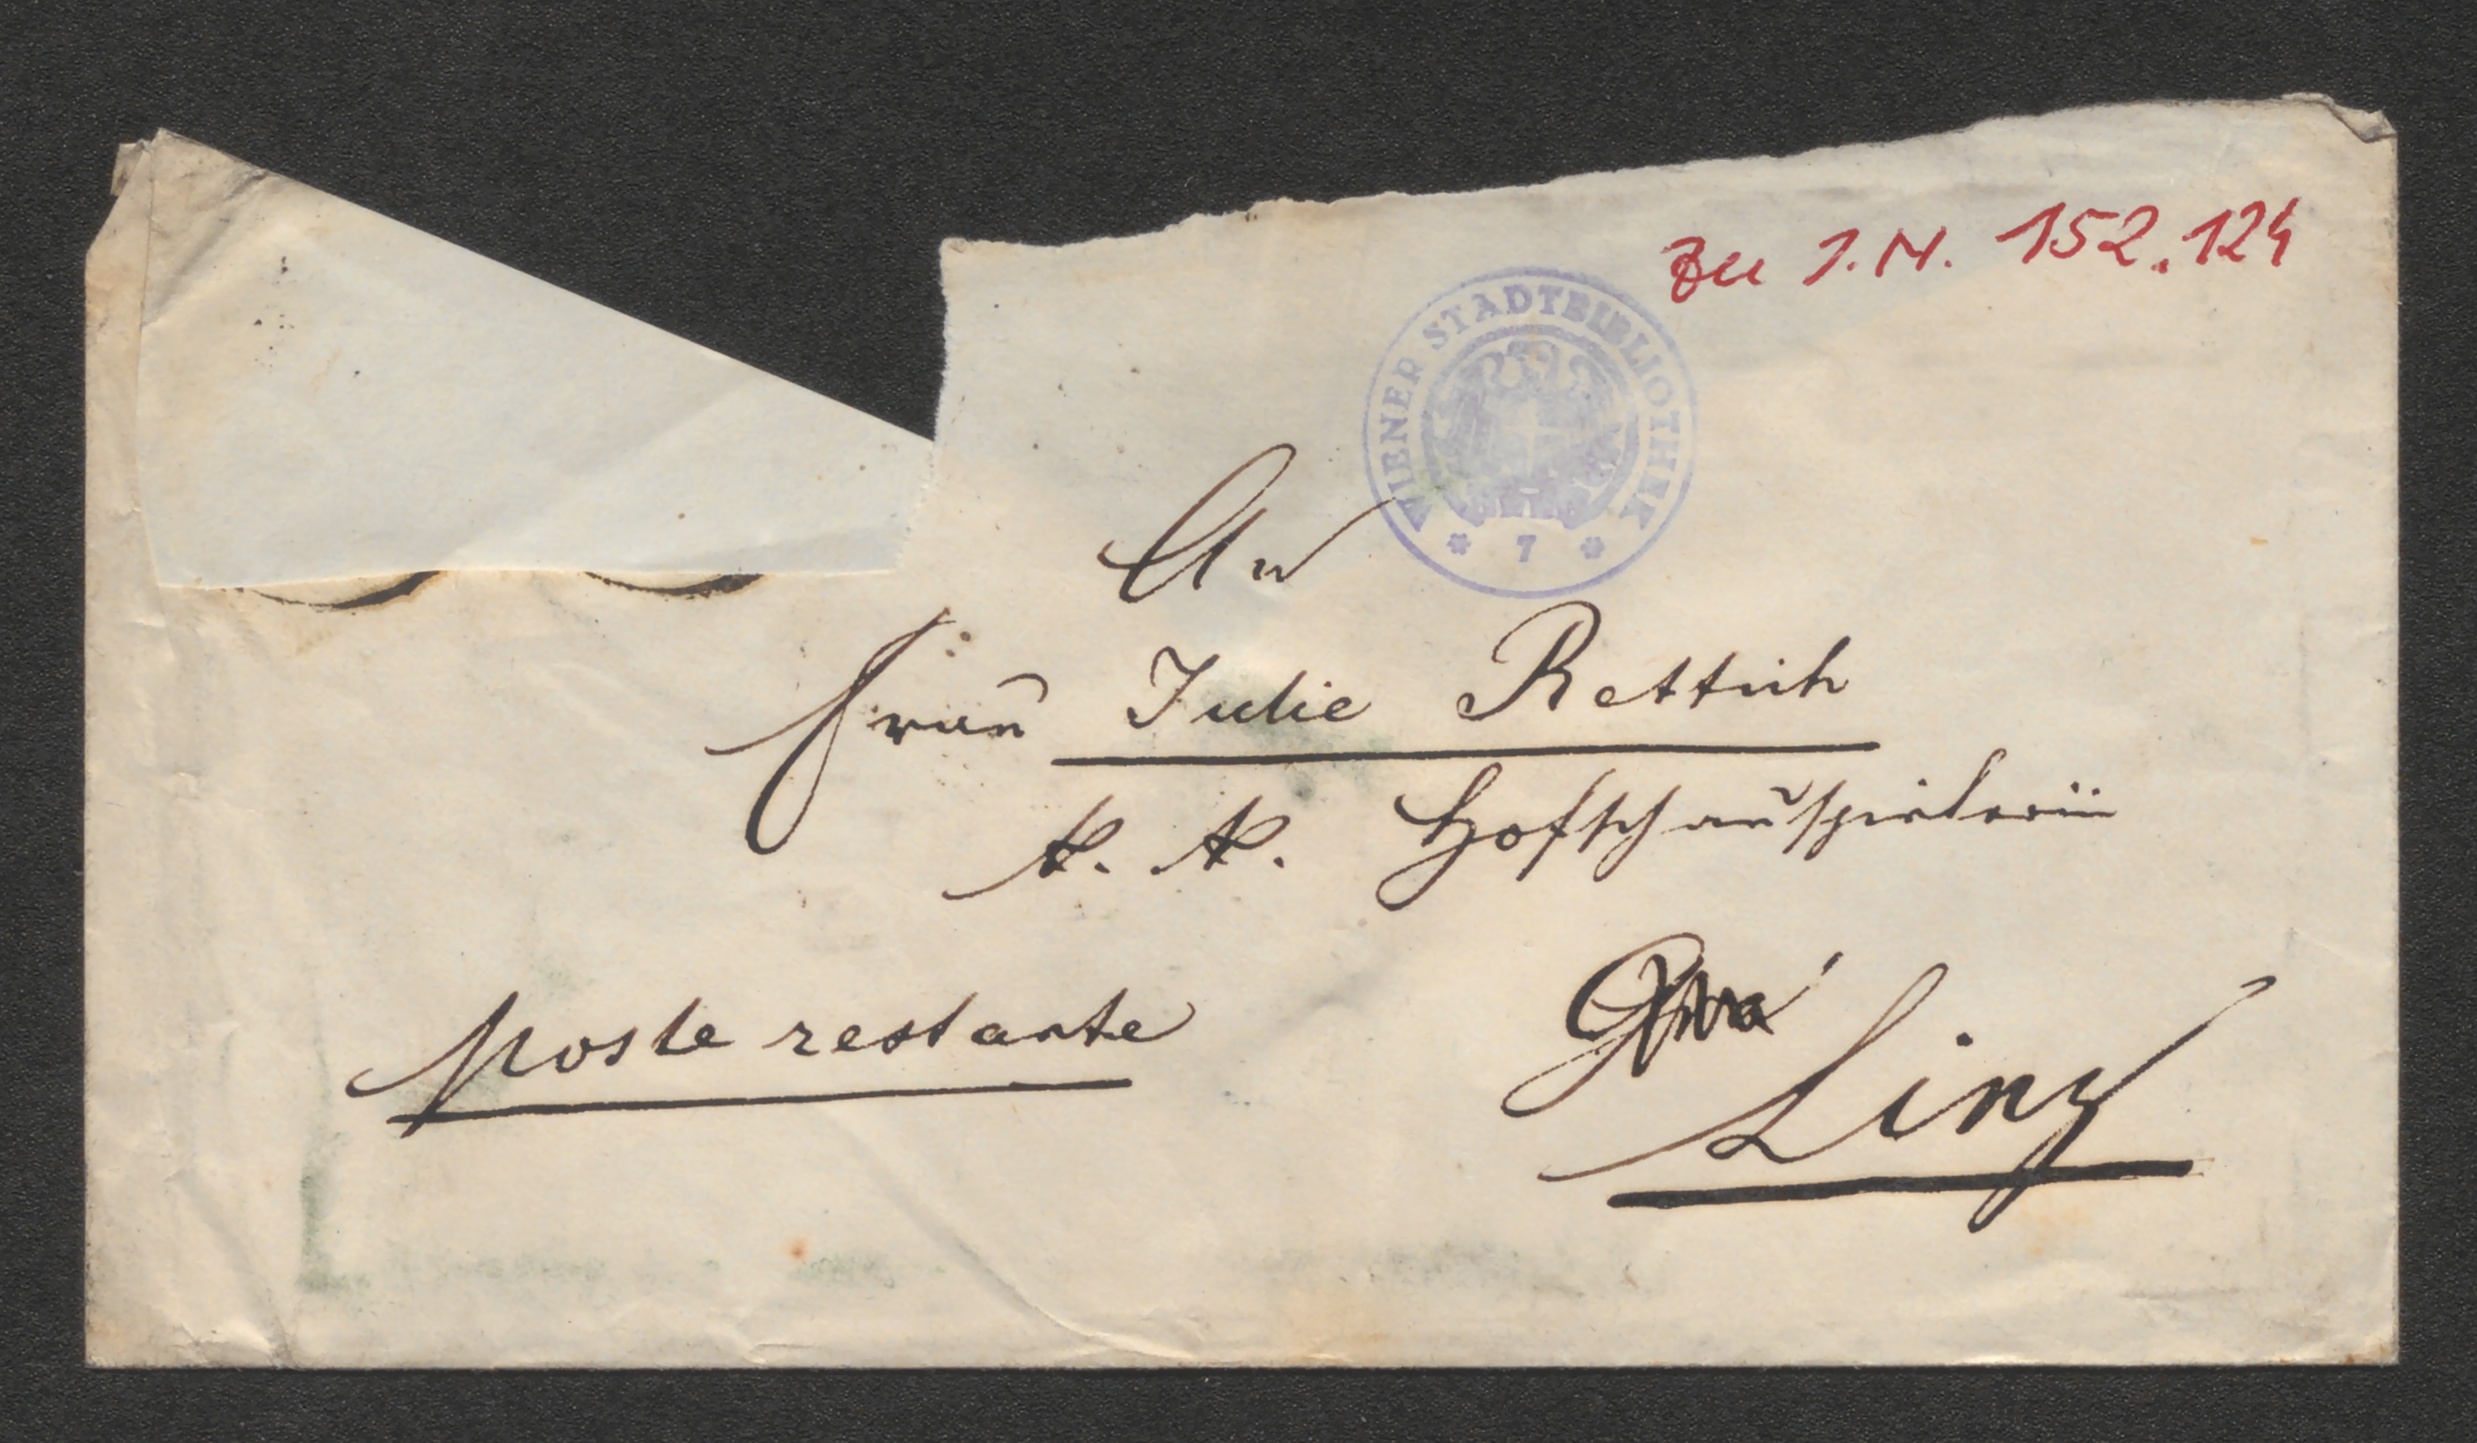 zu I.N. 152.124
WIENER STADTBIBLIOTHEK
* 7 *
An
Frau Julie Rettich
k. k. Hofschauspielerin
poste restante
Linz